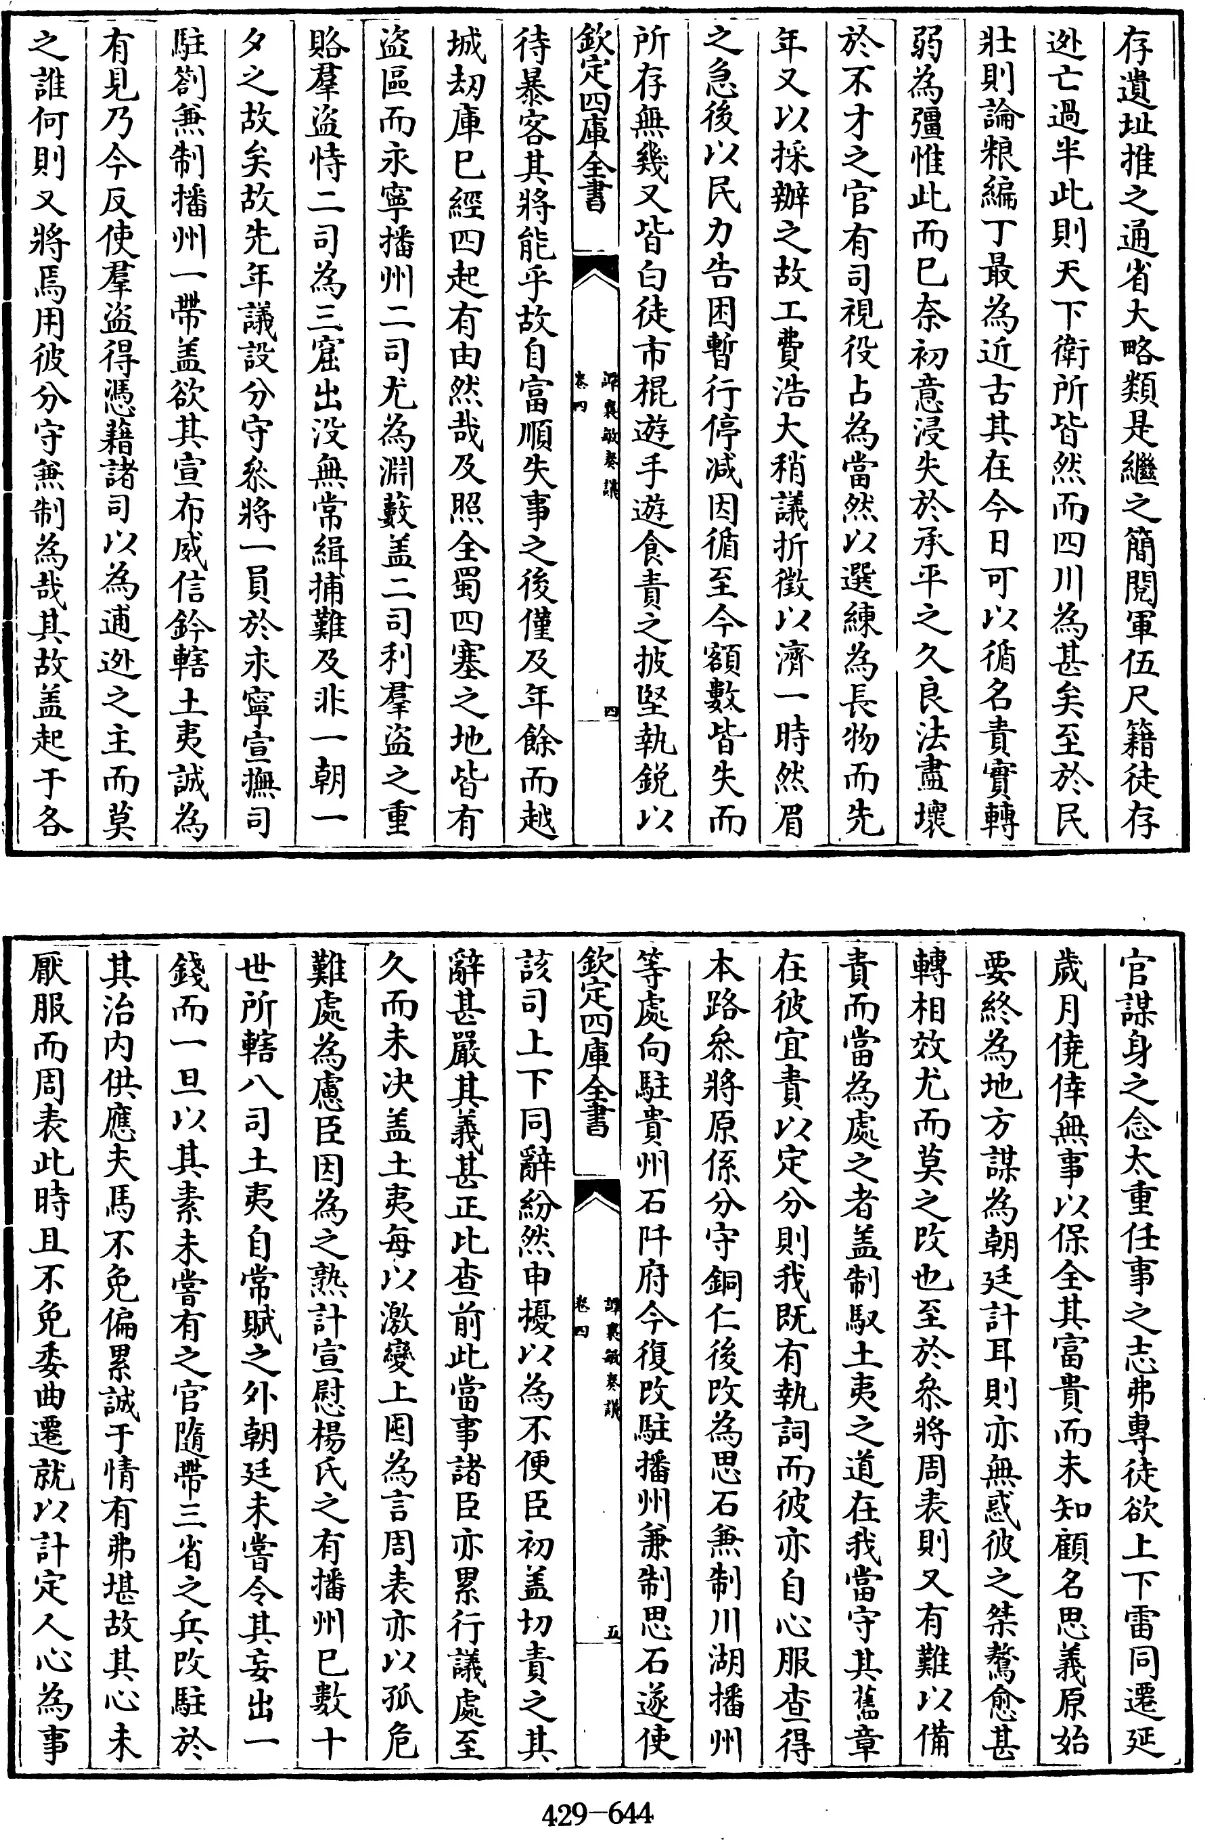 存遺址推之通省大略類是繼之簡閱軍伍尺籍徒存
逃亡過半此則天下衛所皆然而四川為甚矣至於民
壯則論粮編丁最為近古其在今日可以循名責實轉
弱為彊惟此而已奈初意浸失於承平之久良法盡壞
於不才之官有司視役占為當然以選練為長物而先
年又以採辦之故工費浩大稍議折徵以濟一時然眉
之急後以民力告困暫行停减因循至今額數皆失而
所存無幾又皆白徒市棍遊手遊食責之披堅執鋭以
欽定四庫全書
譚襄敏奏議
卷四
四
待暴客其將能乎故自富順失事之後僅及年餘而越
城刼庫已經四起有由然哉及照全蜀四塞之地皆有
盗區而永寧播州二司尤為淵藪盖二司利羣盗之重
賂羣盗恃二司為三窟出没無常緝捕難及非一朝一
夕之故矣故先年議設分守叅將一員於永寧宣撫司
駐劄兼制播州一帶盖欲其宣布威信鈐轄土夷誠為
有見乃今反使羣盗得憑藉諸司以為逋逃之主而莫
之誰何則又將焉用彼分守兼制為哉其故盖起于各
官謀身之念太重任事之志弗專徒欲上下雷同遷延
歲月僥倖無事以保全其富貴而未知顧名思義原始
要終為地方謀為朝廷計耳則亦無惑彼之桀驁愈甚
轉相效尤而莫之改也至於叅將周表則又有難以備
責而當為處之者盖制馭土夷之道在我當守其舊章
在彼宜責以定分則我既有執詞而彼亦自心服查得
本路叅將原係分守銅仁後改為思石兼制川湖播州
等處向駐貴州石阡府今復改駐播州兼制思石遂使
欽定四庫全書
譚襄敏奏議
卷四
五
該司上下同辭紛然申擾以為不便臣初盖切責之其
辭甚嚴其義甚正比查前此當事諸臣亦累行議處至
久而未决盖土夷每以激變上困為言周表亦以孤危
難處為慮臣因為之熟計宣慰楊氏之有播州已數十
世所轄八司土夷自常賦之外朝廷未嘗令其妄出一
錢而一旦以其素未嘗有之官隨帶三省之兵改駐於
其治内供應夫馬不免偏累誠于情有弗堪故其心未
厭服而周表此時且不免委曲遷就以計定人心為事
429-644